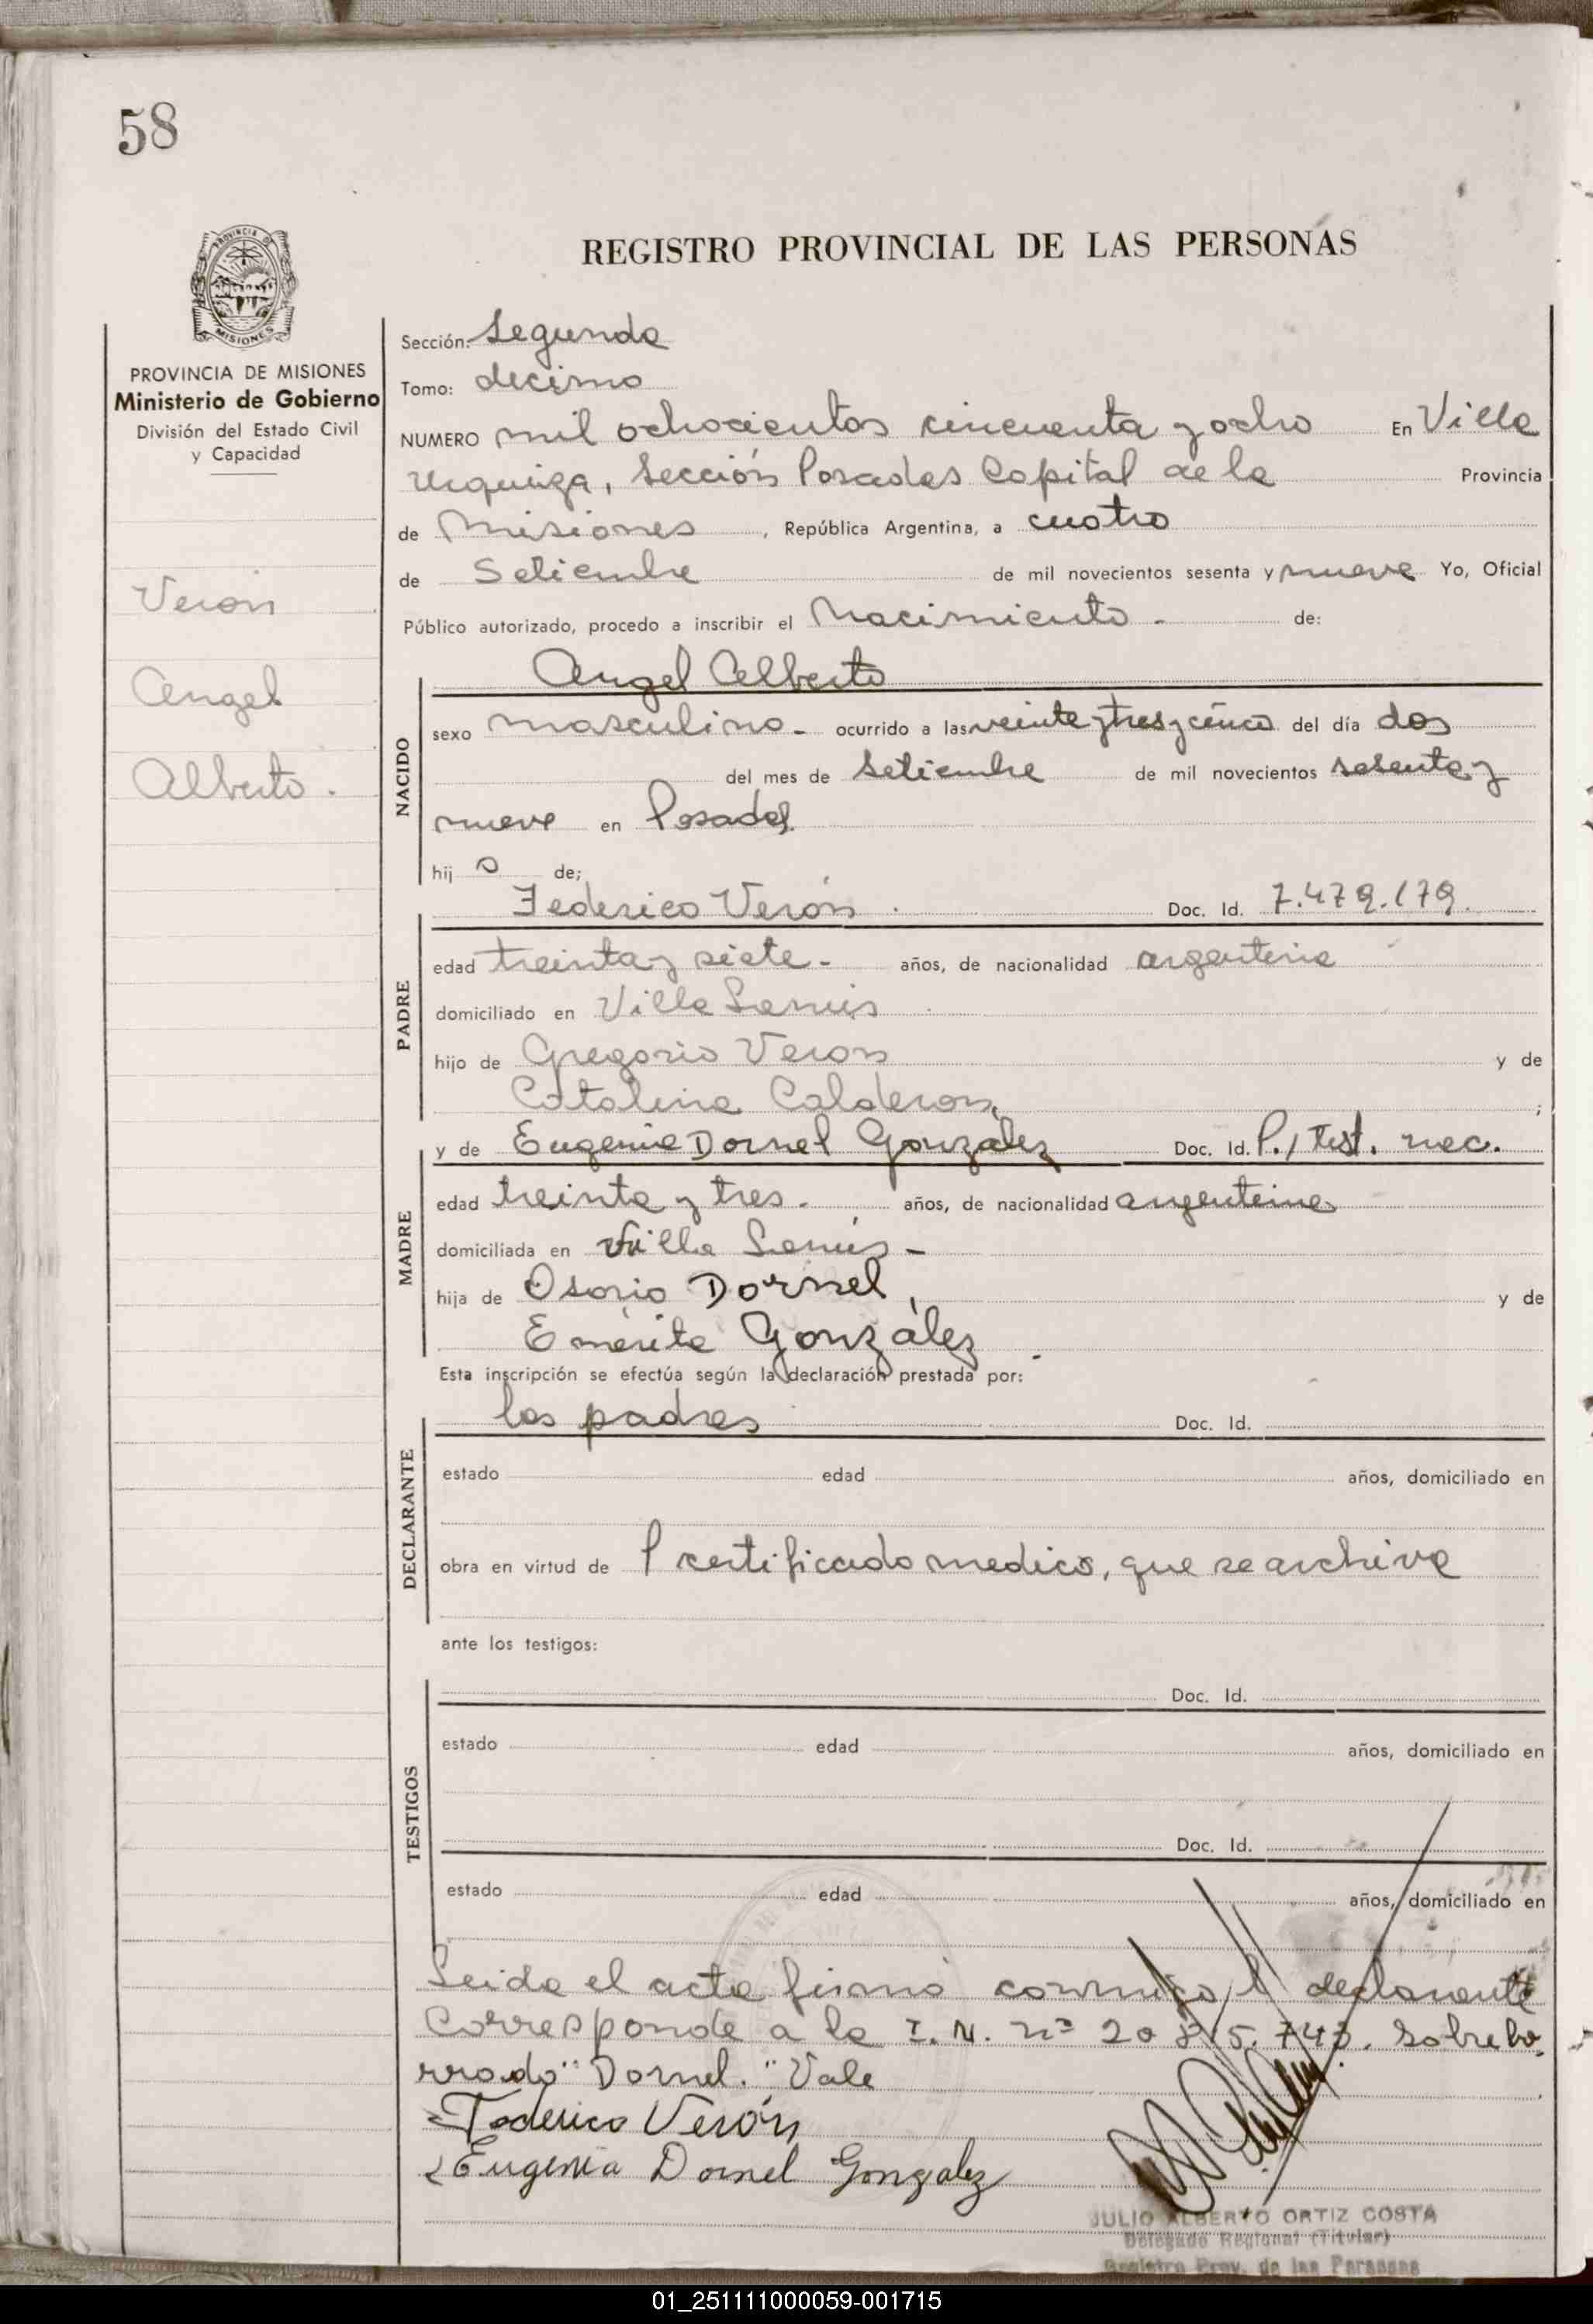 58
REGISTRO PROVINCIAL DE LAS PERSONAS
PROVINCIA DE MISIONES
PROVINCIA DE MISIONES
Ministerio de Gobierno
División del Estado Civil
y Capacidad
Veron
Angel
Alberto.
Sección: Segunda
Tomo: decimo
NUMERO mil ochocientos cincuenta y ocho En Villa
Urquiza, Sección Posadas Capital de la Provincia
de Misiones, República Argentina, a cuatro
de Setiembre de mil novecientos sesenta y nueve Yo, Oficial
Público autorizado, procedo a inscribir el Nacimiento - de:
Angel Alberto
NACIDO
sexo masculino - ocurrido a las veinte y tres y cinco del día dos
del mes de Setiembre de mil novecientos sesenta y
nueve en Posadas
hij o de;
Federico Verón. Doc. Id. 7.479.179.
PADRE
edad treinta y siete - años, de nacionalidad argentina
domiciliado en Villa Lanús
hijo de Gregorio Veron y de
Catalina Calderon, ;
y de Eugenia Dornel González Doc. Id. P./ Test. nec.
MADRE
edad treinta y tres. años, de nacionalidad argentina
domiciliada en Villa Lanús -
hija de Osorio Dornel, y de
Emérita González -
Esta inscripción se efectúa según la declaración prestada por:
los padres Doc. Id.
DECLARANTE
estado edad años, domiciliado en
obra en virtud de 1 certificado medico, que se archiva
ante los testigos:
Doc. Id.
TESTIGOS
estado edad años, domiciliado en
Doc. Id.
estado edad años, domiciliado en
Leida el acta firmó conmigo l declarante
Corresponde a la I. N. nº 20.815.743. Sobrebo-
rrado "Dornel." Vale
Federico Verón
Eugenia Dornel Gonzalez
JULIO ALBERTO ORTIZ COSTA
Delegado Regional (Titular)
Registro Prov. de las Personas
01_251111000059-001715